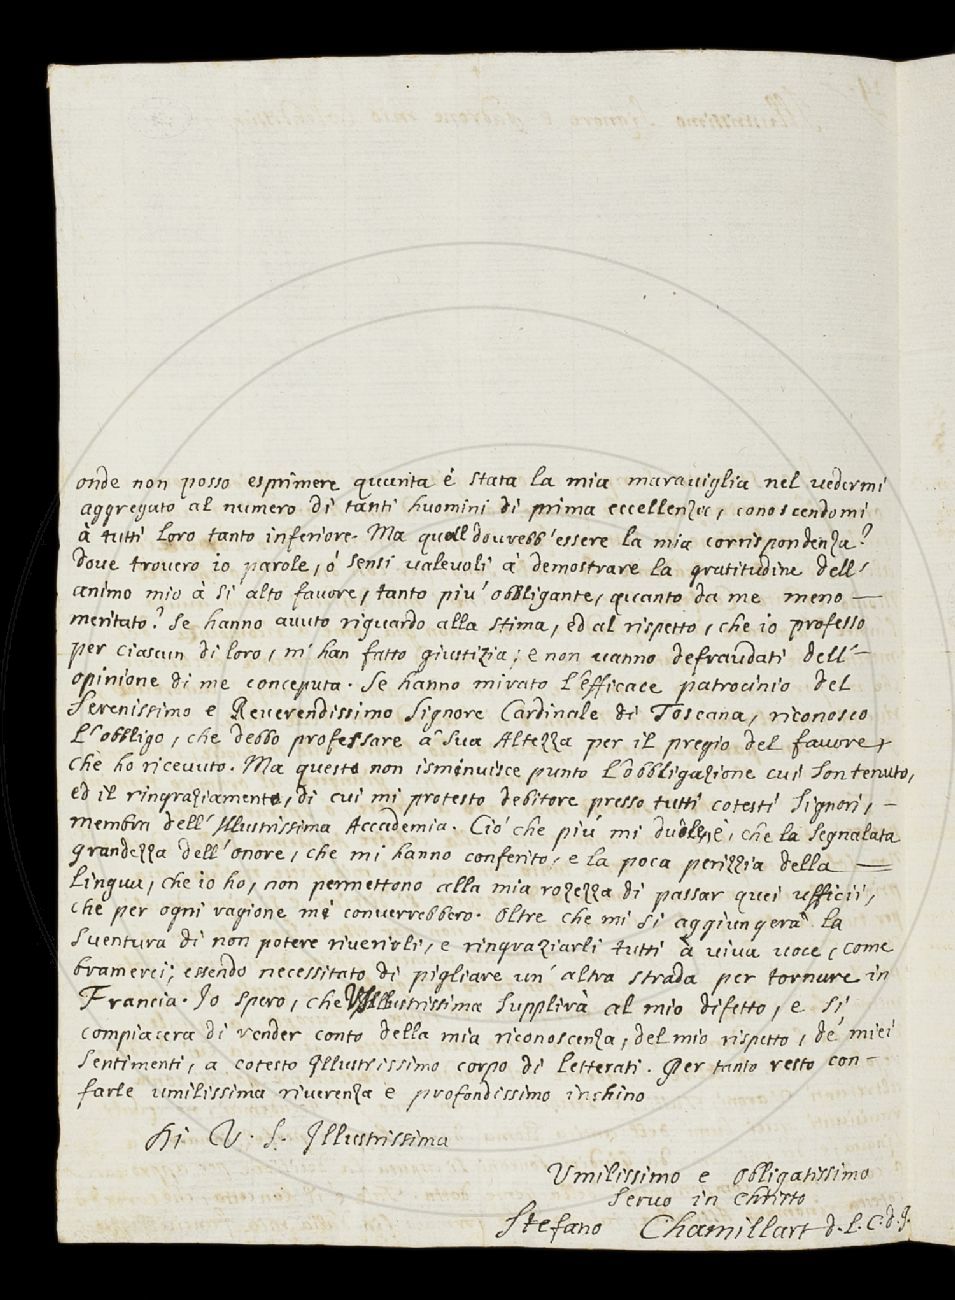 onde non posso esprimere quanta è stata la mia maraviglia nel vedermi
aggregato al numero di tanti huomini di prima eccellenza, conoscendomi
à tutti loro tanto inferiore. Ma quall dovrebb'essere la mia corrispondenza?
Dove trovero io parole, ó sensi valevoli à demostrare la gratitudine dell'
animo mio à si alto favore, tanto piu' obbligante, quanto da me meno —
meritato? Se hanno avuto riguardo alla stima, ed al rispetto, che io professo
per ciascun di loro, m'han fatto giustizia; e non vanno defraudati dell' —
opinione di me conceputa. Se hanno mirato l'efficace patrocinio del
Serenissimo e Reverendissimo Signore Cardinale di Toscana, riconosco
l'obbligo, che debbo professare à Sua Altezza per il pregio del favore,
che ho ricevuto. Ma questo non isminuisce punto l'obbligazione cui son tenuto,
ed il ringraziamento, di cui mi protesto debitore presso tutti cotesti Signori, —
membri dell' Illustrissima Accademia. Ció che piu' mi duole, è, che la segnalata
grandezza dell'onore, che mi hanno conferito, e la poca perizzia della —
lingua, che io ho, non permettono alla mia rozezza di passar quei ufficii,
che per ogni ragione mi converrebbero. Oltre che mi si aggiungerà la
sventura di non potere riverirli, e ringraziarli tutti à viva voce, come
bramerei; essendo necessitato di pigliare un' altra strada per tornare in
Francia. Io spero, che VS Illustrissima supplirà al mio difetto, e si
compiacera di render conto della mia riconoscenza, del mio rispetto, de' miei
sentimenti, a cotesto Illustrissimo corpo di letterati. Per tanto resto con —
farle umilissima riverenza e profondissimo inchino
Di V. S. Illustrissima
Umilissimo e Obbligatissimo
Servo in Christo
Stefano Chamillart d. L. C. d. J.